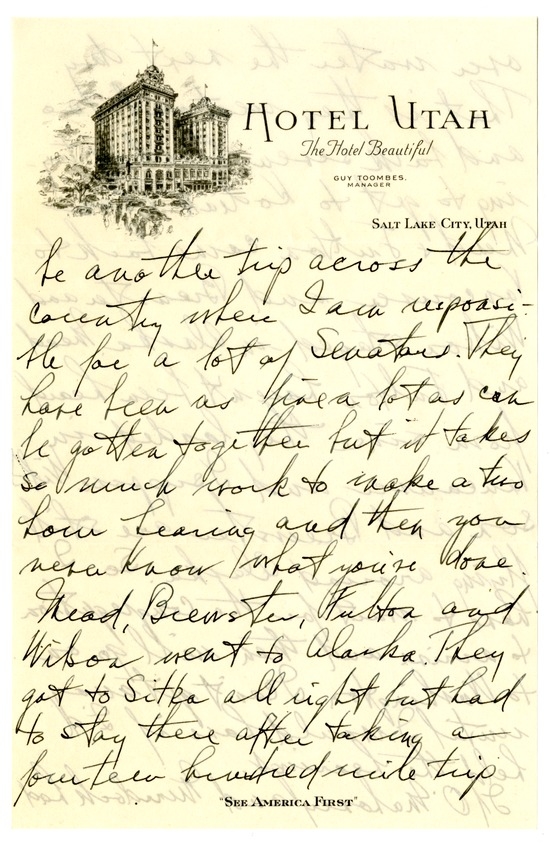 HOTEL UTAH
The Hotel Beautiful
GUY TOOMBES.
MANAGER
SALT LAKE CITY, UTAH
be another trip across the
country when I am responsi-
ble for a lot of Senators. They
have been as fine a lot as can
be gotten together but it takes
so much work to make a two
hour hearing and then you
never know what you've done.
Mead, Brewster, Fulton and
Wilson went to Alaska. They
got to Sitka all right but had
to stay there after taking a
fourteen hundred mile trip
"SEE AMERICA FIRST"